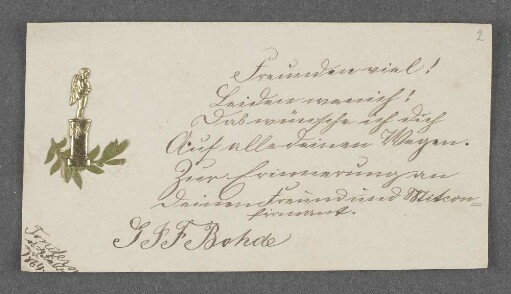 2
Freunden viel!
Leiden wenich!
Das wünsche ich dich
Auf alle deinen Wegen.
Zur Erinnerung an
deinen Freund und Mitcon=
firmant.
J F F Bohde
Tondern
1864